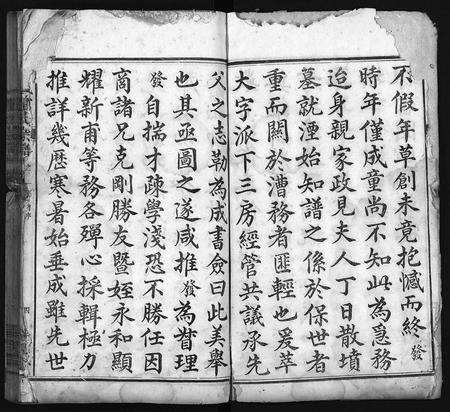 不假年草創未竟抱憾而終發
時年僅成童尚不知此為急務
迨身親家政見夫人丁日散墳
墓就湮始知譜之係於保世者
重而關於漕務者匪輕也爰萃
大字派下三房經管共議承先
父之志勒為成書僉曰此美舉
也其亟圖之遂咸推發為督理
發自揣才疎學淺恐不勝任因
商諸兄克剛勝友暨姪永和顯
耀新甫等務各殫心採輯極力
推詳幾歷寒暑始垂成雖先世